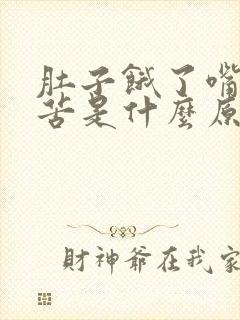 肚子餓了嘴
苦是什麼原
財神爺在我家